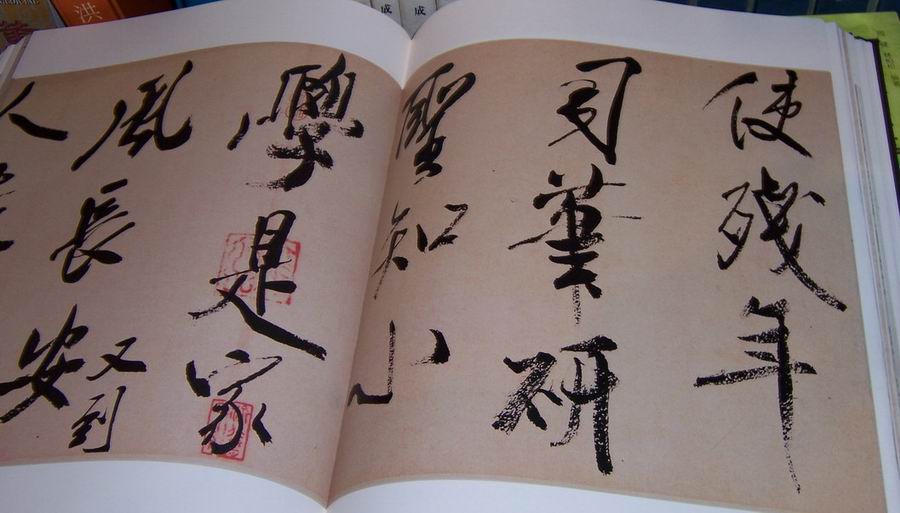 使殘年
司筆研
聖知小
學是家
風長安又到
人
洪
成
成